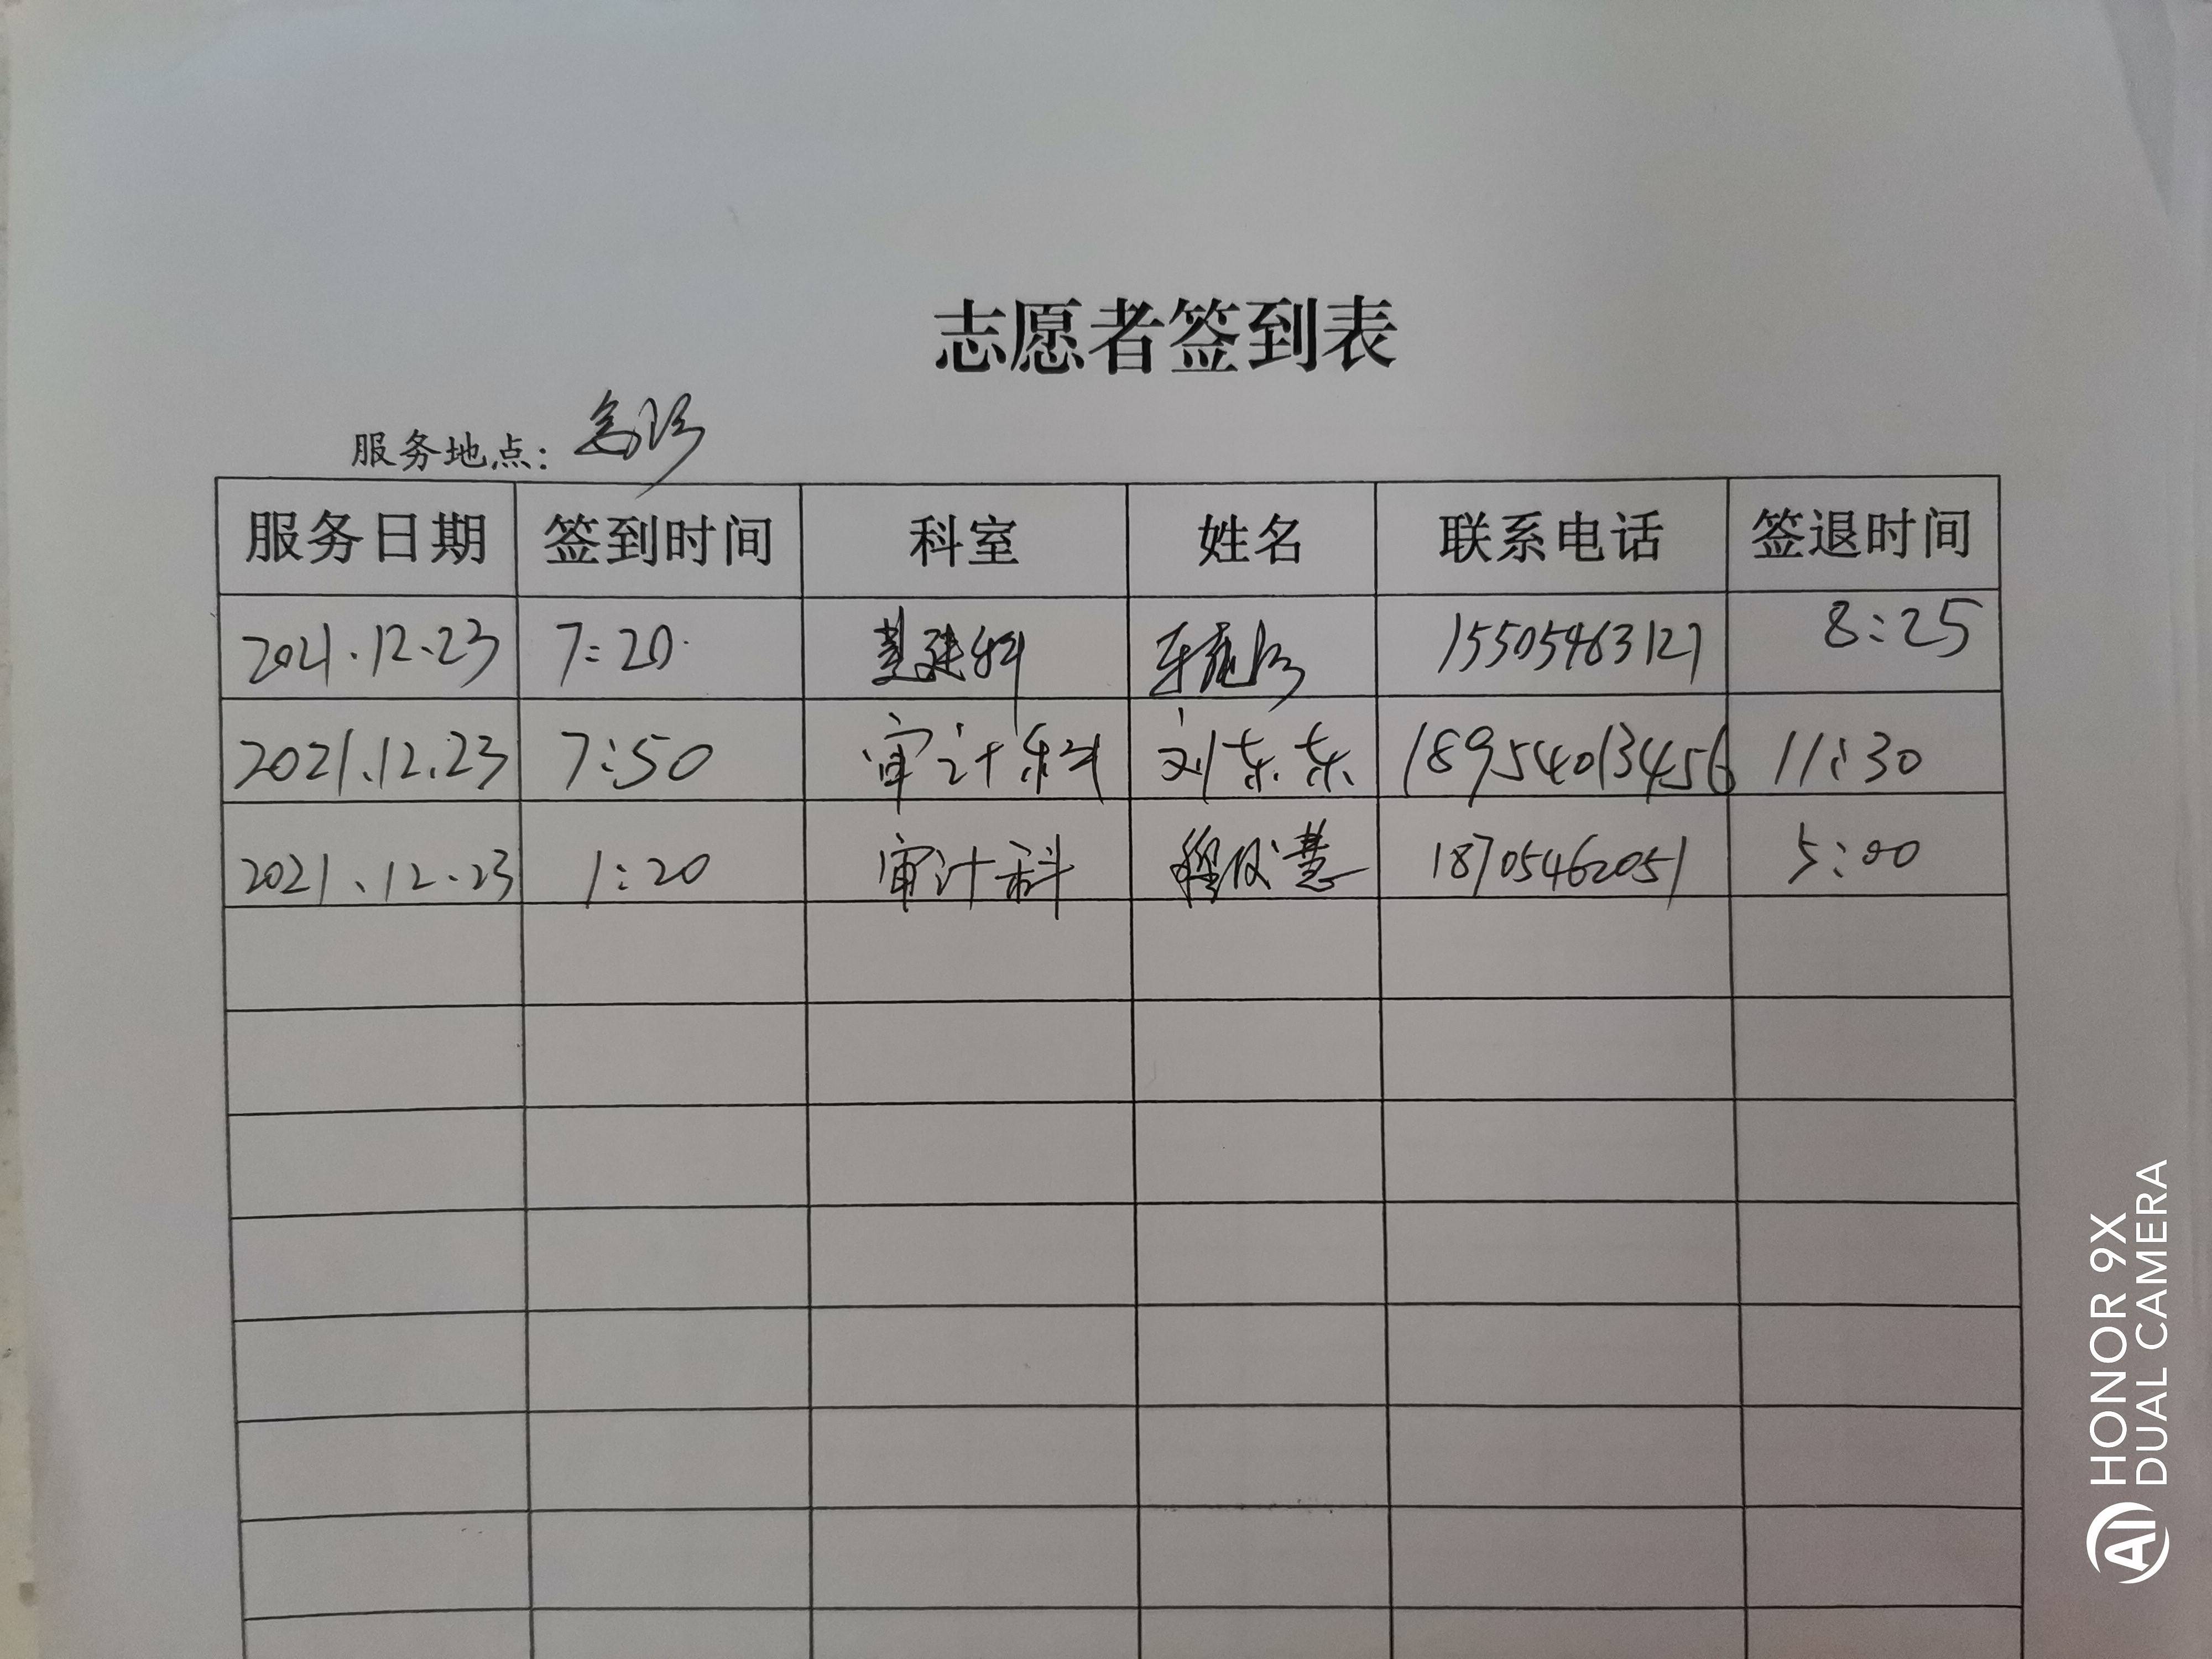 志愿者签到表
服务地点: 急诊
服务日期 签到时间 科室 姓名 联系电话 签退时间
2021.12.23 7:20 基建科 15505463127 8:25
2021.12.23 7:50 审计科 刘东东 18954013456 11:30
2021.12.23 1:20 审计科 程仪慧 18705462051 5:00
HONOR 9X
DUAL CAMERA
AI